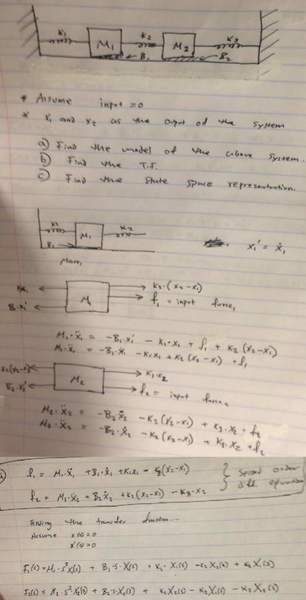 K1 M1 K2 M2 K3
B1 B2
* Assume input = 0
* x1 and x2 as the output of the system
a) Find the model of the above system.
b) Find the T.F.
c) Find the state space representation.
K1 M1 K2
B1
x1' = ẋ1
Mass1
K2·(x2-x1)
M1
B1·x1'
f1 = input force1
M1·ẍ1 = -B1·x1' - K1·x1 + f1 + K2(x2-x1)
M1·ẍ1 = -B1·ẋ1 - K1x1 + K2(x2-x1) + f1
K2(x2-x1)
M2
K3·x2
B2·x2'
f2 = input force2
M2·ẍ2 = -B2ẋ2 - K2(x2-x1) + K3·x2 + f2
M2·ẍ2 = -B2·ẋ2 - K2(x2-x1) + K3·x2 + f2
f1 = M1·ẍ1 + B1·ẋ1 + K1x1 - K2(x2-x1)
second order
diff equation
f2 = M2·ẍ2 + B2ẋ2 + K2(x2-x1) - K3·x2
Finding the transfer function...
Assume x(0) = 0
x'(0) = 0
F1(s) = M1·s²X1(s) + B1·s·X1(s) + K1·X1(s) - K2X2(s) + K2X1(s)
F2(s) = M2·s²X2(s) + B2·s·X2(s) + K2X2(s) - K2X1(s) - K3X2(s)